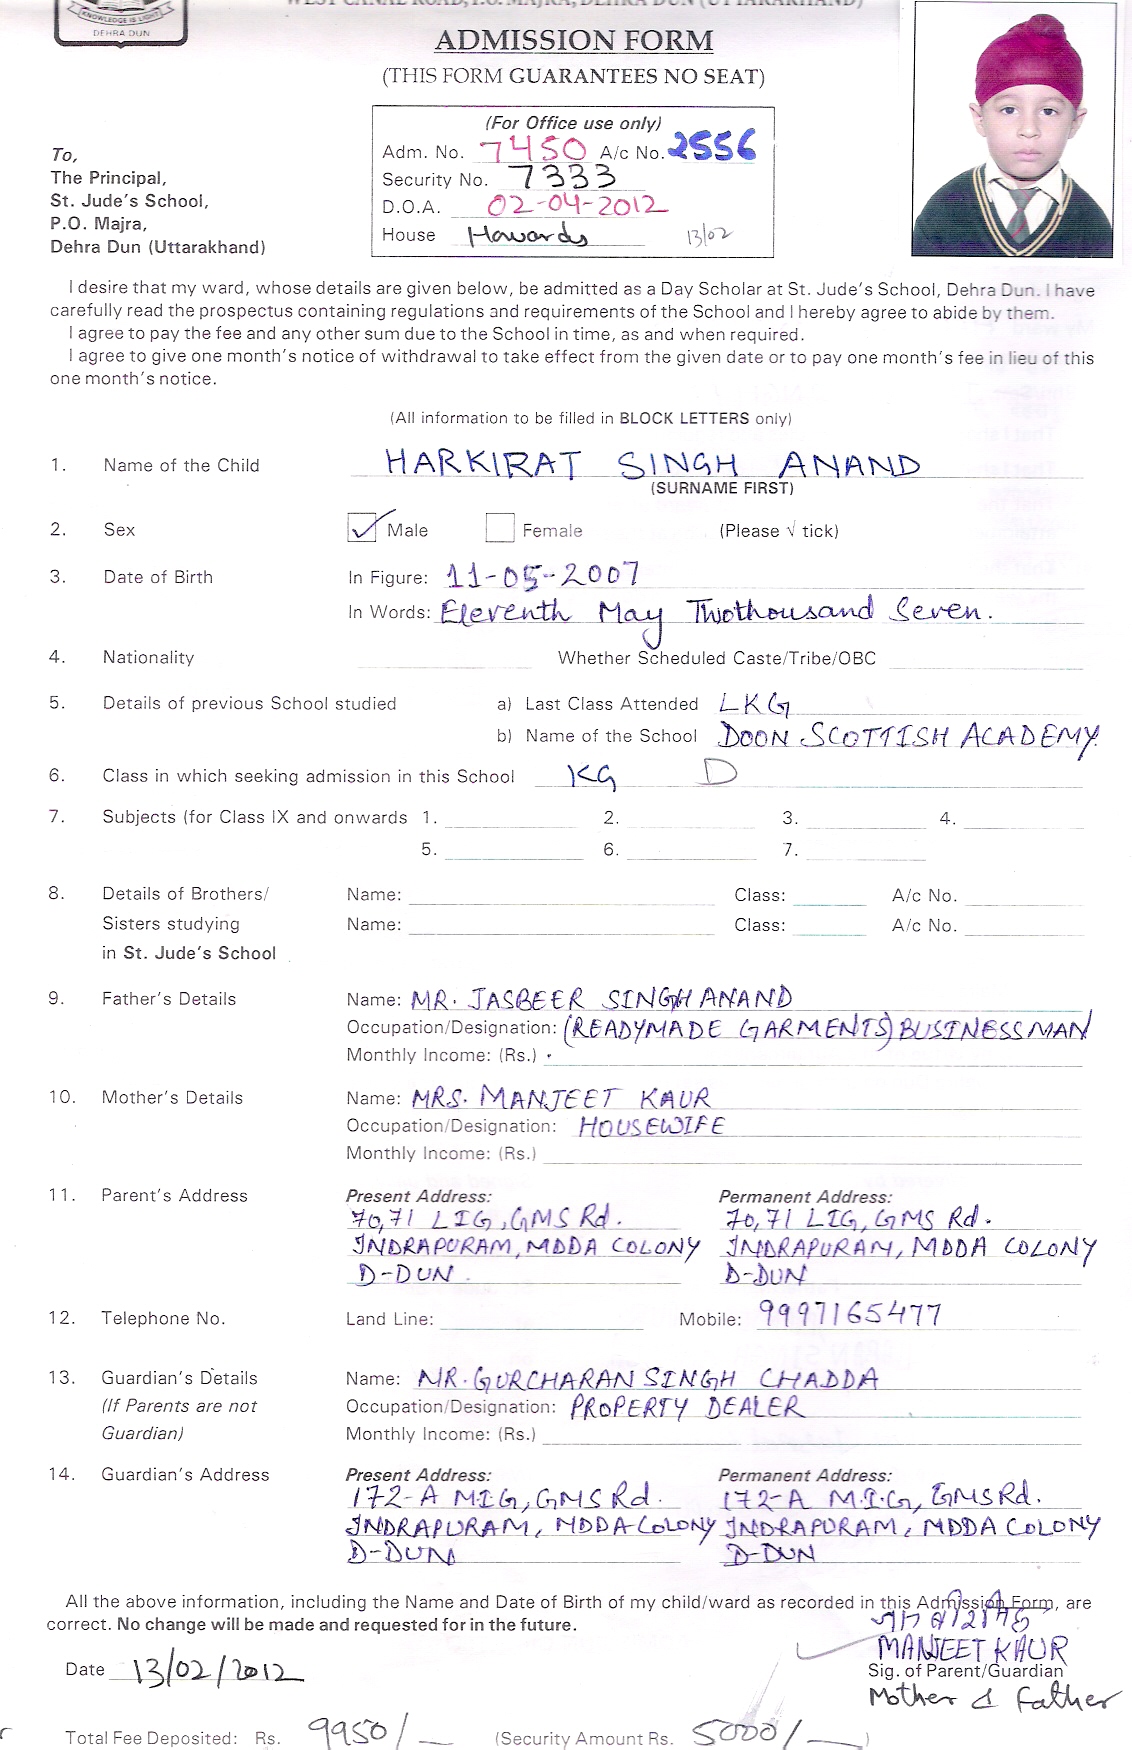 WEST CANAL ROAD, P.O. MAJRA, DEHRA DUN (UTTARAKHAND)
KNOWLEDGE IS LIGHT
DEHRA DUN
ADMISSION FORM
(THIS FORM GUARANTEES NO SEAT)
(For Office use only)
Adm. No. 7450 A/c No. 2556
Security No. 7333
D.O.A. 02-04-2012
House Howards 13/02
To,
The Principal,
St. Jude's School,
P.O. Majra,
Dehra Dun (Uttarakhand)
I desire that my ward, whose details are given below, be admitted as a Day Scholar at St. Jude's School, Dehra Dun. I have
carefully read the prospectus containing regulations and requirements of the School and I hereby agree to abide by them.
I agree to pay the fee and any other sum due to the School in time, as and when required.
I agree to give one month's notice of withdrawal to take effect from the given date or to pay one month's fee in lieu of this
one month's notice.
(All information to be filled in BLOCK LETTERS only)
1. Name of the Child HARKIRAT SINGH ANAND
(SURNAME FIRST)
2. Sex Male Female (Please √ tick)
3. Date of Birth In Figure: 11-05-2007
In Words: Eleventh May Twothousand Seven.
4. Nationality Whether Scheduled Caste/Tribe/OBC
5. Details of previous School studied a) Last Class Attended LKG
b) Name of the School DOON SCOTTISH ACADEMY.
6. Class in which seeking admission in this School KG D
7. Subjects (for Class IX and onwards 1. 2. 3. 4.
5. 6. 7.
8. Details of Brothers/ Name: Class: A/c No.
Sisters studying Name: Class: A/c No.
in St. Jude's School
9. Father's Details Name: MR. JASBEER SINGH ANAND
Occupation/Designation: (READYMADE GARMENTS) BUSINESSMAN
Monthly Income: (Rs.)
10. Mother's Details Name: MRS. MANJEET KAUR
Occupation/Designation: HOUSEWIFE
Monthly Income: (Rs.)
11. Parent's Address Present Address: Permanent Address:
70,71 LIG, GMS Rd. 70,71 LIG, GMS Rd.
INDRAPURAM, MDDA COLONY INDRAPURAM, MDDA COLONY
D-DUN. D-DUN
12. Telephone No. Land Line: Mobile: 9997165477
13. Guardian's Details Name: MR. GURCHARAN SINGH CHADDA
(If Parents are not Occupation/Designation: PROPERTY DEALER
Guardian) Monthly Income: (Rs.)
14. Guardian's Address Present Address: Permanent Address:
172-A M.I.G, GMS Rd. 172-A M.I.G, GMS Rd.
INDRAPURAM, MDDA COLONY INDRAPURAM, MDDA COLONY
D-DUN D-DUN
All the above information, including the Name and Date of Birth of my child/ward as recorded in this Admission Form, are
correct. No change will be made and requested for in the future.
MANJEET KAUR
Date 13/02/2012 Sig. of Parent/Guardian
Mother & Father
Total Fee Deposited: Rs. 9950/- (Security Amount Rs. 5000/-)